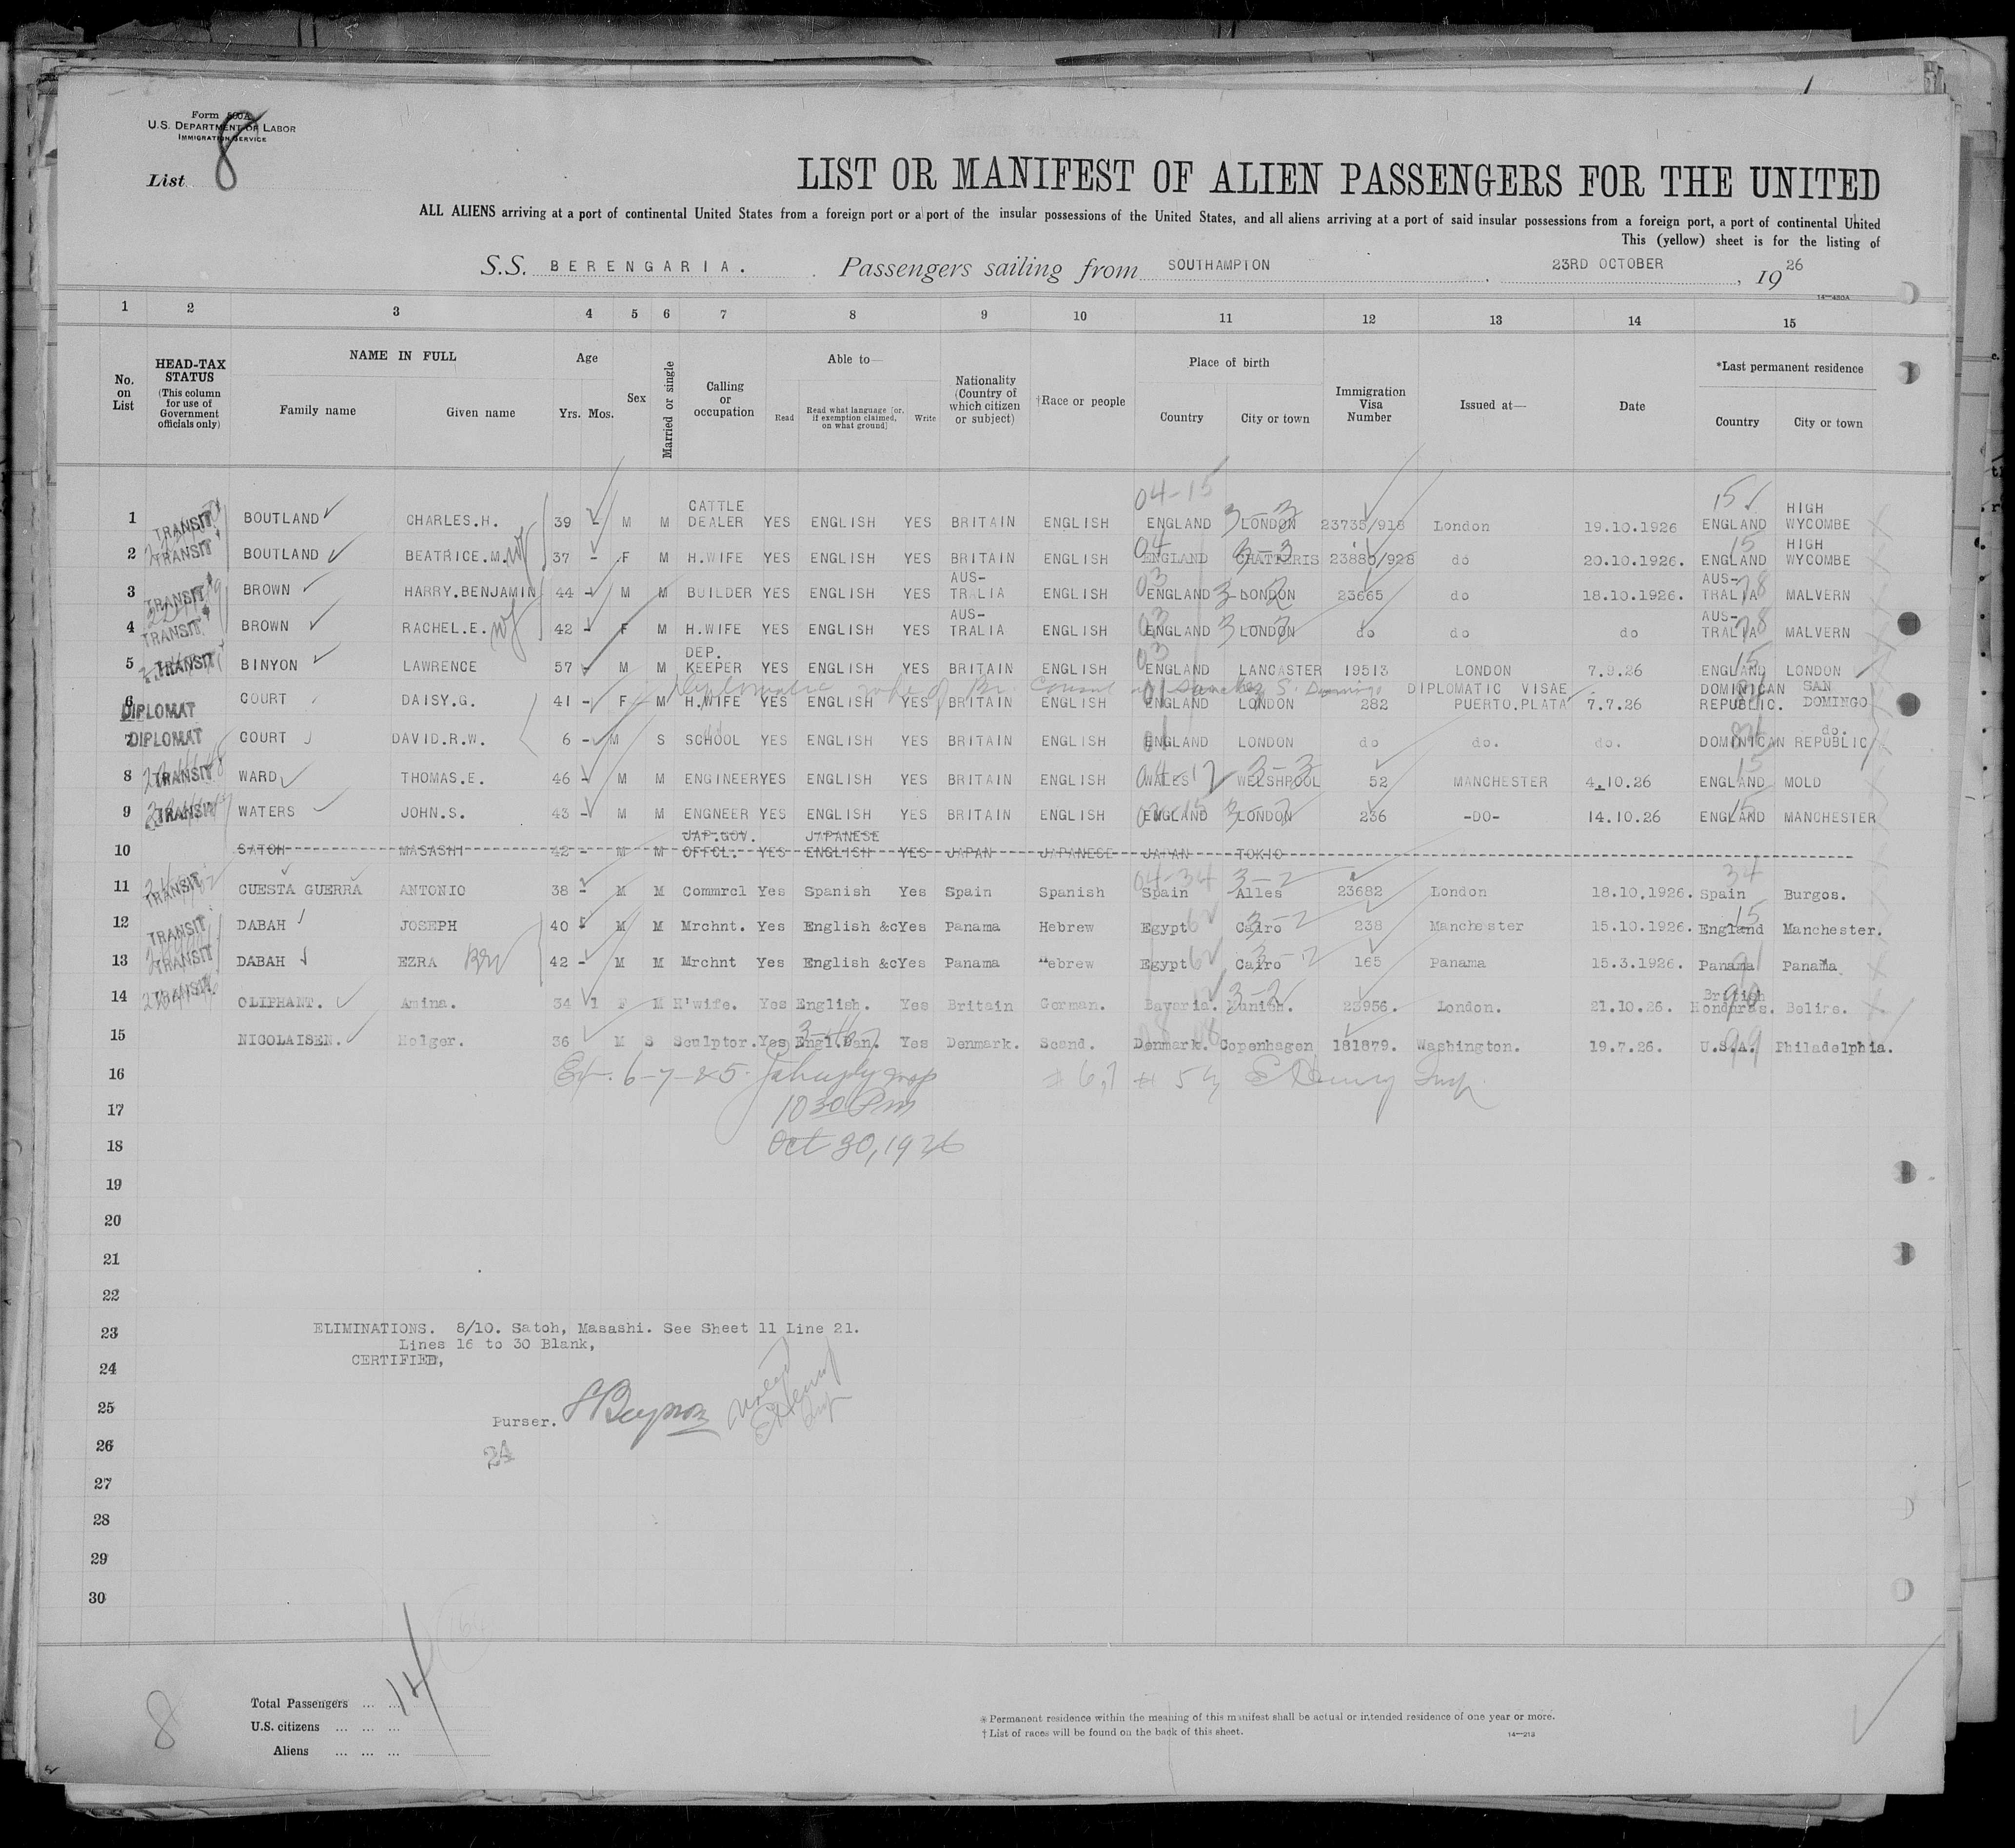 Form 500A
U.S. DEPARTMENT OF LABOR
IMMIGRATION SERVICE
List 8
LIST OR MANIFEST OF ALIEN PASSENGERS FOR THE UNITED
ALL ALIENS arriving at a port of continental United States from a foreign port or a port of the insular possessions of the United States, and all aliens arriving at a port of said insular possessions from a foreign port, a port of continental United
This (yellow) sheet is for the listing of
S.S. BERENGARIA. Passengers sailing from SOUTHAMPTON. 23RD OCTOBER, 1926
14—480A
1 2 3 4 5 6 7 8 9 10 11 12 13 14 15
No. on List
HEAD-TAX STATUS (This column for use of Government officials only)
NAME IN FULL Family name Given name
Age Yrs. Mos.
Sex
Married or single
Calling or occupation
Able to— Read Read what language [or, if exemption claimed, on what ground] Write
Nationality (Country of which citizen or subject)
†Race or people
Place of birth Country City or town
Immigration Visa Number
Issued at—
Date
*Last permanent residence Country City or town
1 TRANSIT BOUTLAND CHARLES.H. 39 - M M CATTLE DEALER YES ENGLISH YES BRITAIN ENGLISH 04-15 ENGLAND 3-3 LONDON 23735/918 London 19.10.1926 15 ENGLAND HIGH WYCOMBE
2 TRANSIT BOUTLAND BEATRICE.M. wf 37 - F M H.WIFE YES ENGLISH YES BRITAIN ENGLISH 04 ENGLAND 3-3 CHATTERIS 23880/928 do 20.10.1926. 15 ENGLAND HIGH WYCOMBE
3 TRANSIT BROWN HARRY.BENJAMIN 44 - M M BUILDER YES ENGLISH YES AUS-TRALIA ENGLISH 03 ENGLAND 3-2 LONDON 23665 do 18.10.1926. AUS-TRALIA 78 MALVERN
4 TRANSIT BROWN RACHEL.E. wf 42 - F M H.WIFE YES ENGLISH YES AUS-TRALIA ENGLISH 03 ENGLAND 3-2 LONDON do do do AUS-TRALIA 78 MALVERN
5 TRANSIT BINYON LAWRENCE 57 M M DEP. KEEPER YES ENGLISH YES BRITAIN ENGLISH 03 ENGLAND LANCASTER 19513 LONDON 7.9.26 15 ENGLAND LONDON
Diplomatic wife of Br. Consul Sanchez S. Domingo
6 DIPLOMAT COURT DAISY.G. 41 - F M H.WIFE YES ENGLISH YES BRITAIN ENGLISH 01 ENGLAND LONDON 282 DIPLOMATIC VISAE PUERTO.PLATA 7.7.26 DOMINICAN REPUBLIC. SAN DOMINGO
7 DIPLOMAT COURT DAVID.R.W. 6 - M S SCHOOL YES ENGLISH YES BRITAIN ENGLISH 01 ENGLAND LONDON do do. do. DOMINICAN REPUBLIC do.
8 TRANSIT WARD THOMAS.E. 46 - M M ENGINEER YES ENGLISH YES BRITAIN ENGLISH 04-12 WALES 3-3 WELSHPOOL 52 MANCHESTER 4.10.26 15 ENGLAND MOLD
9 TRANSIT WATERS JOHN.S. 43 - M M ENGNEER YES ENGLISH YES BRITAIN ENGLISH ENGLAND 3-2 LONDON 236 -DO- 14.10.26 15 ENGLAND MANCHESTER
10 SATOH MASASHI 42 - M M JAP.GOV. OFFCL. YES JAPANESE ENGLISH YES JAPAN JAPANESE JAPAN TOKIO
11 TRANSIT CUESTA GUERRA ANTONIO 38 - M M Commrcl Yes Spanish Yes Spain Spanish 04-34 Spain 3-2 Alles 23682 London 18.10.1926. 34 Spain Burgos.
12 TRANSIT DABAH JOSEPH 40 - M M Mrchnt. Yes English &c Yes Panama Hebrew Egypt 62 3-2 Cairo 238 Manchester 15.10.1926. 15 England Manchester.
13 TRANSIT DABAH EZRA Bro 42 - M M Mrchnt Yes English &c Yes Panama Hebrew Egypt 62 3-2 Cairo 165 Panama 15.3.1926. Panama 91 Panama
14 TRANSIT OLIPHANT. Amina. 34 1 F M H'wife. Yes English. Yes Britain German. Bavaria. 3-2 Munich. 23956. London. 21.10.26. British Honduras. 90 Belize.
15 NICOLAISEN. Holger. 36 M S Sculptor. Yes Engl.Dan. Yes Denmark. Scand. Denmark. 08 Copenhagen 181879. Washington. 19.7.26. U.S.A. 99 Philadelphia.
16 Ex. 6-7-&5. insp # 6,7 # 5 Insp
17 10 30 Pm
18 Oct 30, 1926
19
20
21
22
23 ELIMINATIONS. 8/10. Satoh, Masashi. See Sheet 11 Line 21.
Lines 16 to 30 Blank,
24 CERTIFIED,
25 Purser. Noted Insp
26 24
27
28
29
30
8
Total Passengers ... ... 14
U.S. citizens ... ... ...
Aliens ... ... ...
* Permanent residence within the meaning of this manifest shall be actual or intended residence of one year or more.
† List of races will be found on the back of this sheet.
14—213